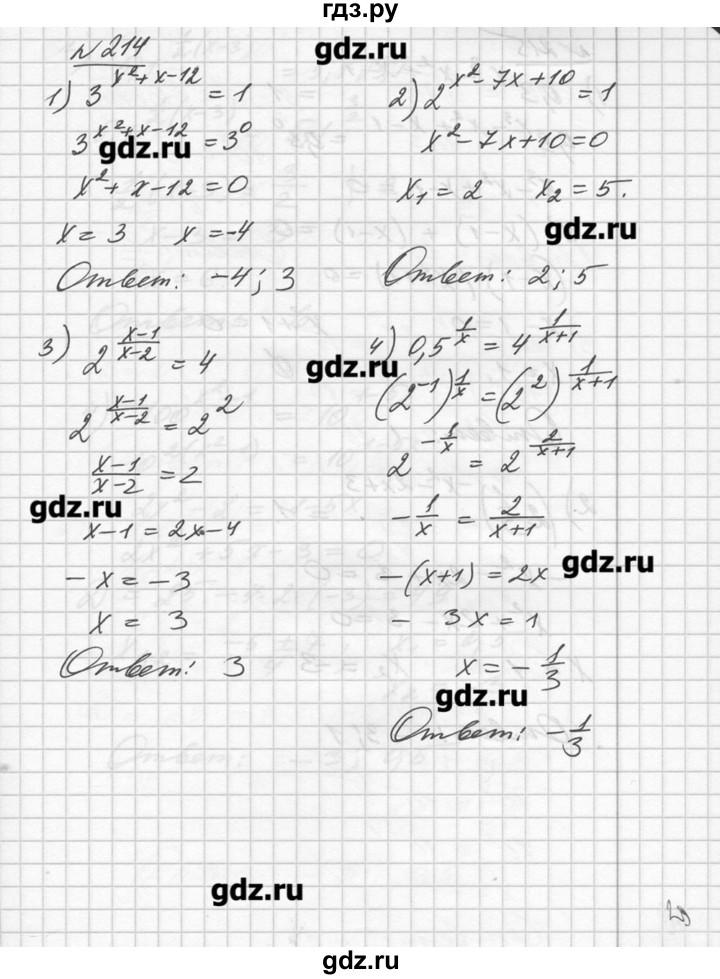 гдз.ру
№214
gdz.ru
1) 3^(x²+x-12) = 1
3^(x²+x-12) = 3^0
gdz.ru
x²+x-12=0
x = 3    x = -4
Ответ: -4; 3
2) 2^(x²-7x+10) = 1
x²-7x+10=0
x₁ = 2    x₂ = 5.
gdz.ru
Ответ: 2; 5
3) 2^((x-1)/(x-2)) = 4
2^((x-1)/(x-2)) = 2²
(x-1)/(x-2) = 2
gdz.ru
x-1 = 2x-4
-x = -3
x = 3
Ответ: 3
4) 0,5^(1/x) = 4^(1/(x+1))
gdz.ru
(2^(-1))^(1/x) = (2²)^(1/(x+1))
2^(-1/x) = 2^(2/(x+1))
-1/x = 2/(x+1)
gdz.ru
-(x+1) = 2x
- 3x = 1
x = -1/3
gdz.ru
Ответ: -1/3
gdz.ru
gdz.ru